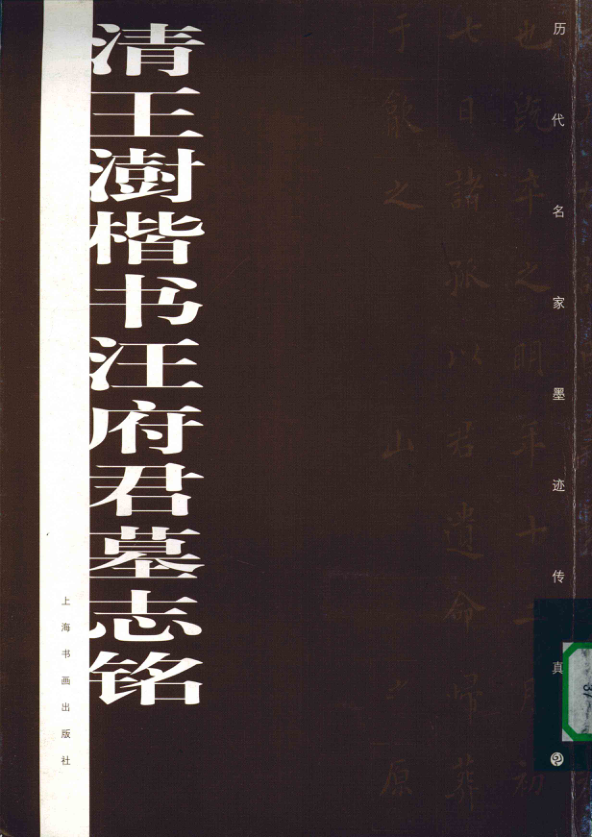 历代名家墨迹传真
也既卒之明年十二月初
七日諸孤以君遺命歸葬
于歙之 山 之原
清王澍楷书汪府君墓志铭
上海书画出版社